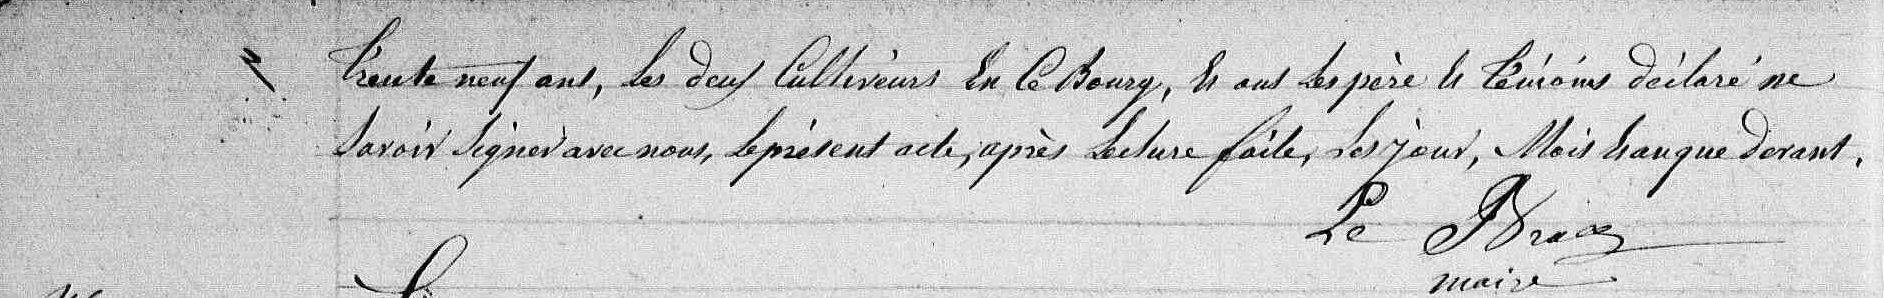 trente neuf ans, les deux Cultiveurs En Ce Bourg, Et ont les père Et témoins déclaré ne
Savoir Signer avec nous, le présent acte, après lecture faite, les jour, Mois Et an que devant.
Le Braz
maire